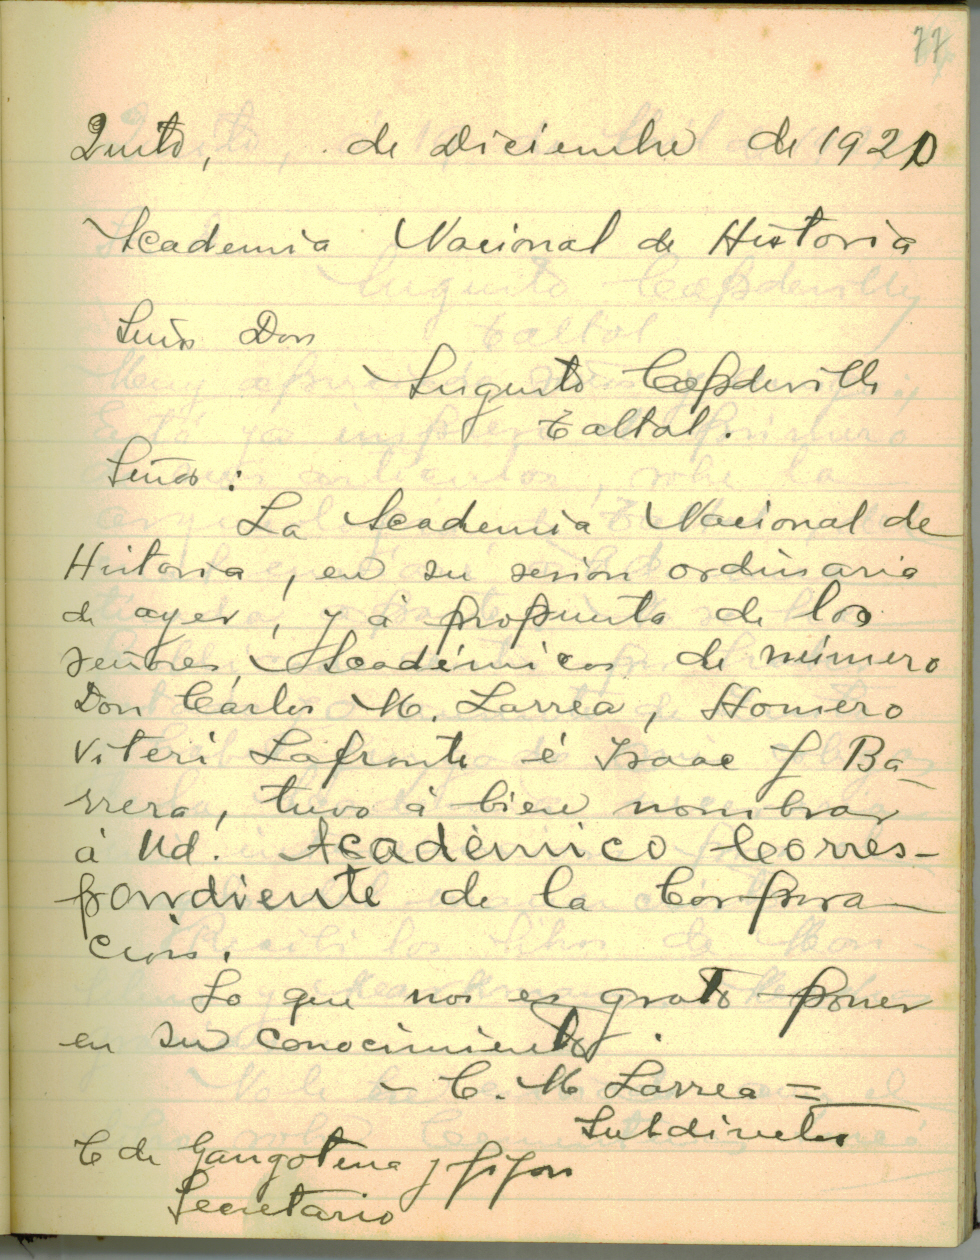 77
Quito, . de Diciembre de 1920
Academia Nacional de Historia
Señor Don
Augusto Capdeville
Taltal.
Señor:
La Academia Nacional de
Historia, en su sesion ordinaria
de ayer, y à propuesta de los
señores Académicos de número
Don Cárlos M. Larrea, Homero
Viteri Lafronte é Isaac J Ba-
rrera, tuvo à bien nombrar
á Ud. Académico Corres-
pondiente de la Corpora-
cion.
Lo que nos es grato poner
en su conocimiento.
C. M. Larrea =
Subdirector
C de Gangotena y Jijon
Secretario